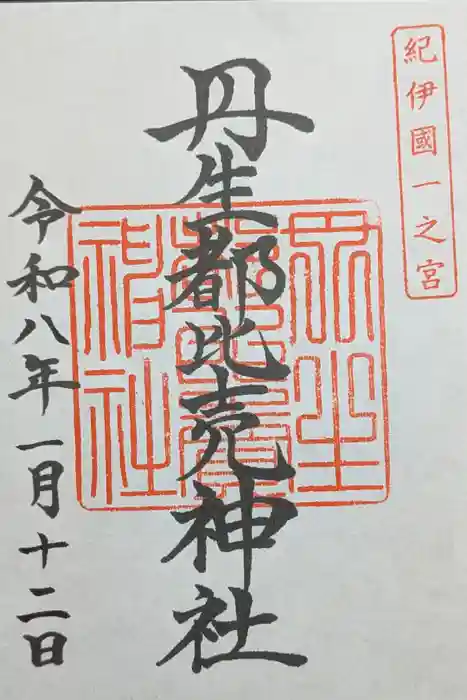 紀伊國一之宮
丹生都比売神社
丹生都比売神社
令和八年一月十二日